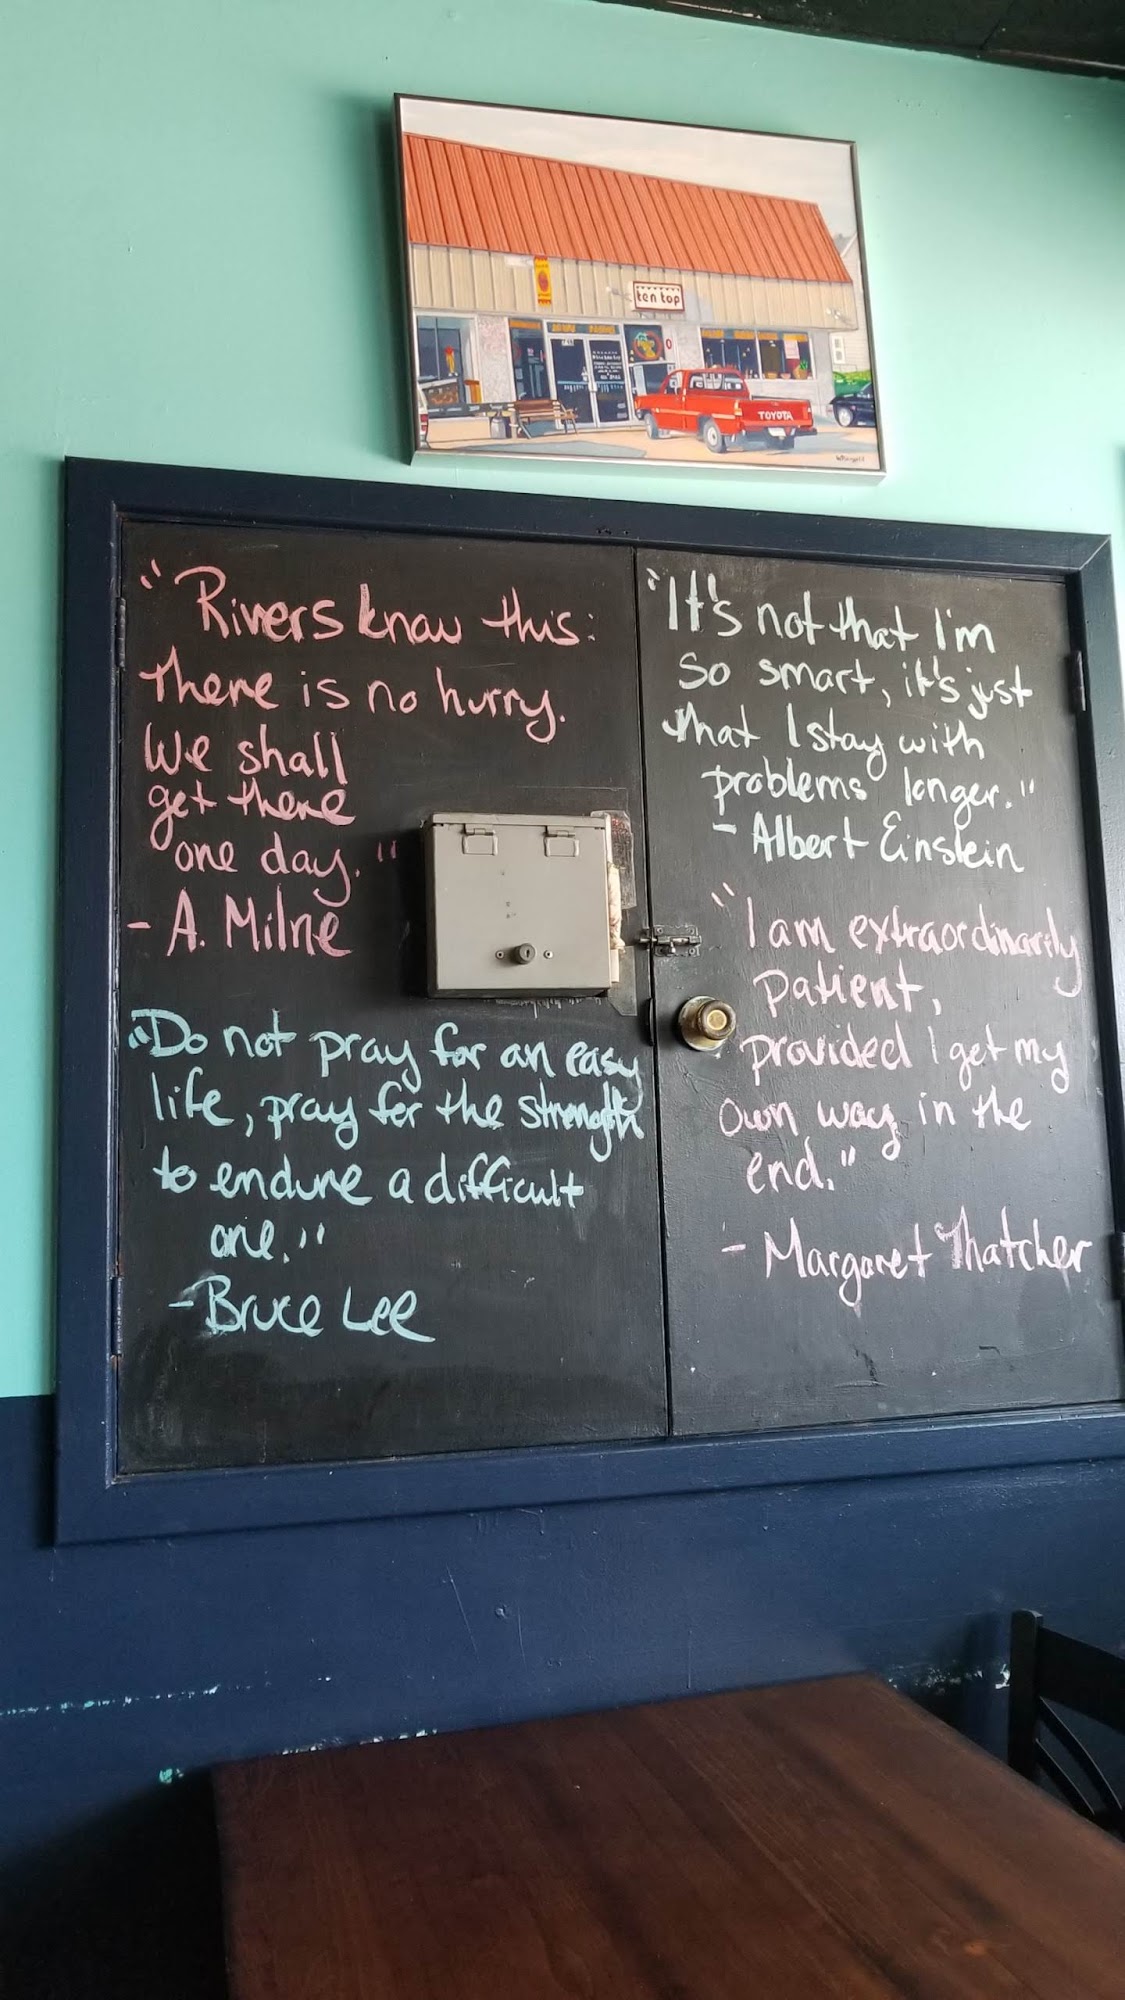 ten top
TOYOTA
"Rivers know this:
there is no hurry.
We shall
get there
one day."
- A. Milne
"Do not pray for an easy
life, pray for the strength
to endure a difficult
one."
- Bruce Lee
"It's not that I'm
so smart, it's just
that I stay with
problems longer."
- Albert Einstein
"I am extraordinarily
patient,
provided I get my
own way in the
end."
- Margaret Thatcher